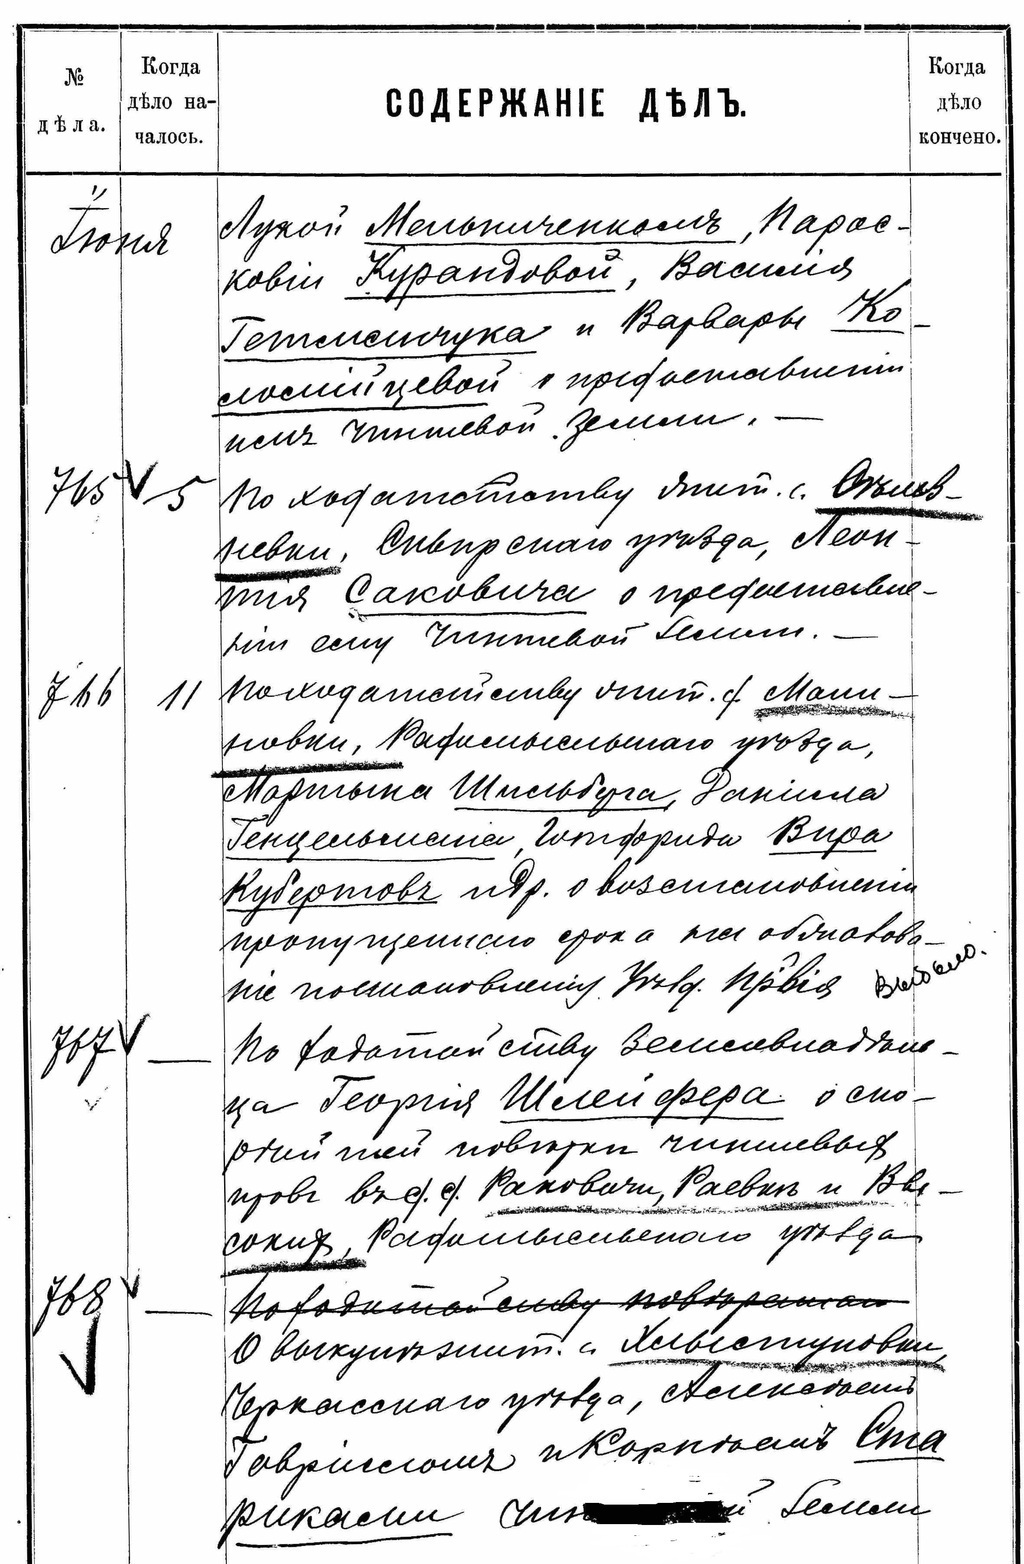 № дѣла.
Когда дѣло на-чалось.
СОДЕРЖАНІЕ ДѢЛЪ.
Когда дѣло кончено.
Іюня
Лукой Мельниченкомъ, Парас-
ковіи Курандовой, Василія
Гетманчука и Варвары Ко-
ломійцевой о предоставленіи
имъ чиншевой земли. —
765 5 По ходатайству жит. с.
невки, Сквирскаго уѣзда, Леон-
тія Саковича о предоставле-
ніи ему чиншевой земли. —
766 11 По ходатайству жит. д. Мали-
новки, Радомысльскаго уѣзда,
Мартына Шильберга, Даніила
Генцельмана, Готфрида Вира
Кубертовъ и др. о возстановленіи
пропущеннаго срока на обжалова-
ніе постановленія Уѣзд. Пр-вія Выбыло.
767 — По ходатайству землевладѣль-
ца Георгія Шлейфера о ско-
рѣйшей повѣрки чиншевыхъ
правъ въ с. с. Раковичи, Раевкѣ и Вы-
сокихъ, Радомысльскаго уѣзда
768 — По ходатайству
О выкупѣ жит. с. Хлыстуновки,
Черкасскаго уѣзда, Алексѣемъ
Гавріиломъ и Корнѣемъ Ста
риками чин й земли